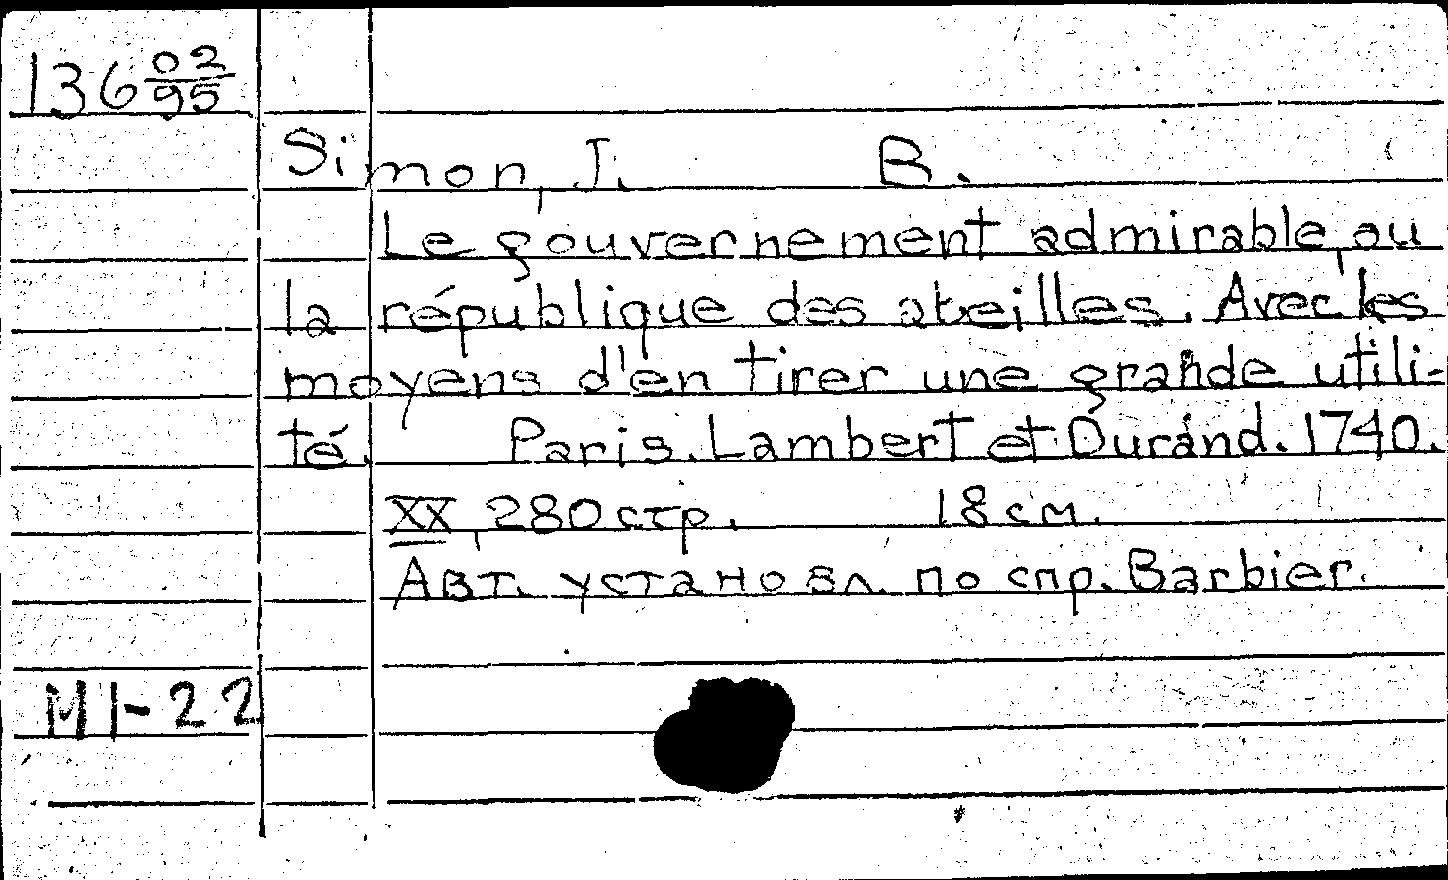 136 02/95
Simon, J. B.
Le gouvernement admirable, ou
la république des abeilles. Avec les
moyens d'en tirer une grande utili-
té. Paris. Lambert et Durand. 1740.
XX, 280 стр. 18 см.
Авт. установл. по спр. Barbier.
М1-22